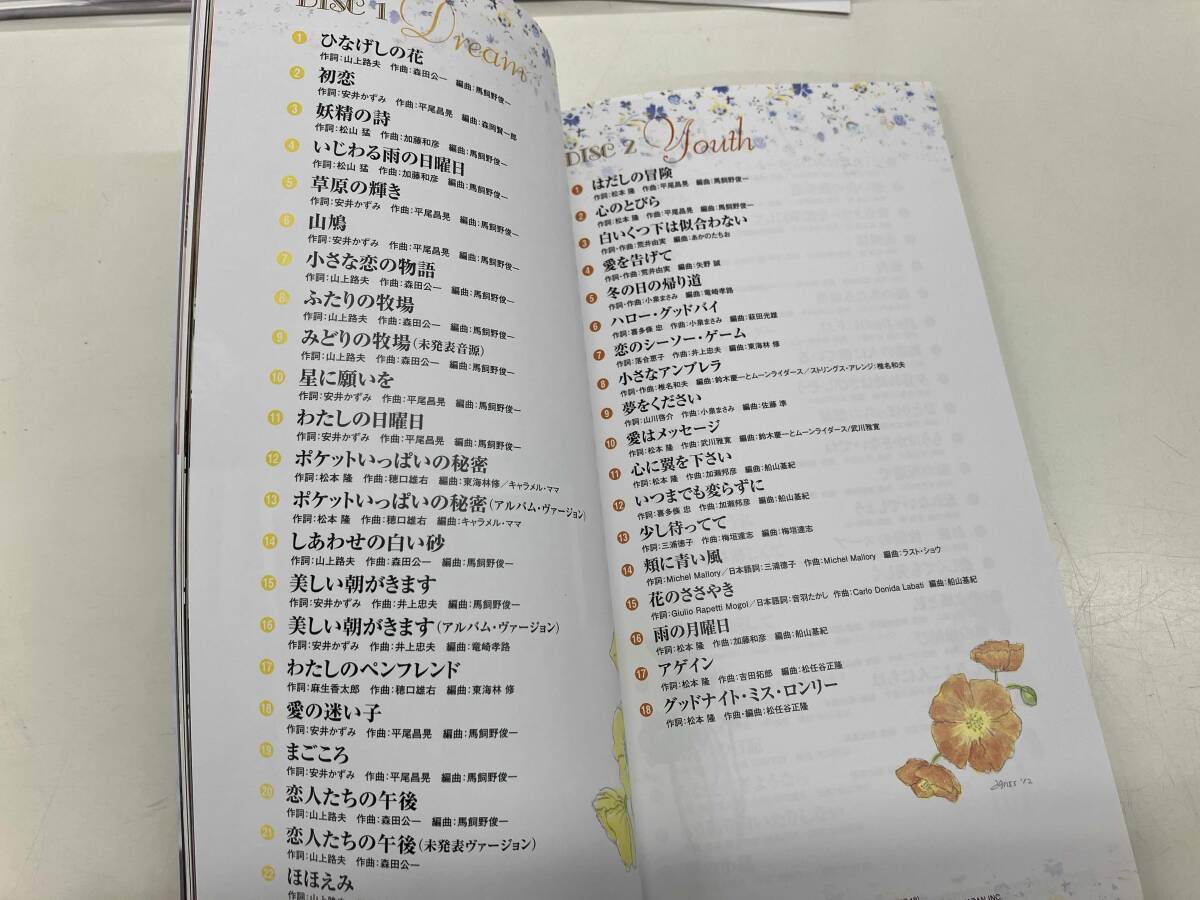 DISC 1 Dream
1 ひなげしの花
作詞：山上路夫 作曲：森田公一 編曲：馬飼野俊一
2 初恋
作詞：安井かずみ 作曲：平尾昌晃 編曲：森岡賢一郎
3 妖精の詩
作詞：松山 猛 作曲：加藤和彦 編曲：馬飼野俊一
4 いじわる雨の日曜日
作詞：松山 猛 作曲：加藤和彦 編曲：馬飼野俊一
5 草原の輝き
作詞：安井かずみ 作曲：平尾昌晃 編曲：馬飼野俊一
6 山鳩
作詞：安井かずみ 作曲：平尾昌晃 編曲：馬飼野俊一
7 小さな恋の物語
作詞：山上路夫 作曲：森田公一 編曲：馬飼野俊一
8 ふたりの牧場
作詞：山上路夫 作曲：森田公一 編曲：馬飼野俊一
9 みどりの牧場（未発表音源）
作詞：山上路夫 作曲：森田公一 編曲：馬飼野俊一
10 星に願いを
作詞：安井かずみ 作曲：平尾昌晃 編曲：馬飼野俊一
11 わたしの日曜日
作詞：安井かずみ 作曲：平尾昌晃 編曲：馬飼野俊一
12 ポケットいっぱいの秘密
作詞：松本 隆 作曲：穂口雄右 編曲：東海林修／キャラメル・ママ
13 ポケットいっぱいの秘密（アルバム・ヴァージョン）
作詞：松本 隆 作曲：穂口雄右 編曲：キャラメル・ママ
14 しあわせの白い砂
作詞：山上路夫 作曲：森田公一 編曲：馬飼野俊一
15 美しい朝がきます
作詞：安井かずみ 作曲：井上忠夫 編曲：馬飼野俊一
16 美しい朝がきます（アルバム・ヴァージョン）
作詞：安井かずみ 作曲：井上忠夫 編曲：竜崎孝路
17 わたしのペンフレンド
作詞：麻生香太郎 作曲：穂口雄右 編曲：東海林 修
18 愛の迷い子
作詞：安井かずみ 作曲：平尾昌晃 編曲：馬飼野俊一
19 まごころ
作詞：安井かずみ 作曲：平尾昌晃 編曲：馬飼野俊一
20 恋人たちの午後
作詞：山上路夫 作曲：森田公一 編曲：馬飼野俊一
21 恋人たちの午後（未発表ヴァージョン）
作詞：山上路夫 作曲：森田公一
22 ほほえみ
DISC 2 Youth
1 はだしの冒険
作詞：松本 隆 作曲：平尾昌晃 編曲：馬飼野俊一
2 心のとびら
作詞：松本 隆 作曲：平尾昌晃 編曲：馬飼野俊一
3 白いくつ下は似合わない
作詞・作曲：荒井由実 編曲：あかのたちお
4 愛を告げて
作詞・作曲：荒井由実 編曲：矢野 誠
5 冬の日の帰り道
作詞・作曲：小泉まさみ 編曲：竜崎孝路
6 ハロー・グッドバイ
作詞：喜多條 忠 作曲：小泉まさみ 編曲：萩田光雄
7 恋のシーソー・ゲーム
作詞：落合恵子 作曲：井上忠夫 編曲：東海林 修
8 小さなアンブレラ
作詞・作曲：椎名和夫 編曲：鈴木慶一とムーンライダース／ストリングス・アレンジ：椎名和夫
9 夢をください
作詞：山川啓介 作曲：小泉まさみ 編曲：佐藤 準
10 愛はメッセージ
作詞：松本 隆 作曲：武川雅寛 編曲：鈴木慶一とムーンライダース/武川雅寛
11 心に翼を下さい
作詞：松本 隆 作曲：加瀬邦彦 編曲：船山基紀
12 いつまでも変らずに
作詞：喜多條 忠 作曲：加瀬邦彦 編曲：船山基紀
13 少し待ってて
作詞：三浦徳子 作曲：梅垣達志 編曲：梅垣達志
14 頬に青い風
作詞：Michel Mallory／日本語詞：三浦徳子 作曲：Michel Mallory 編曲：ラスト・ショウ
15 花のささやき
作詞：Giulio Rapetti Mogol／日本語詞：音羽たかし 作曲：Carlo Donida Labati 編曲：船山基紀
16 雨の月曜日
作詞：松本 隆 作曲：加藤和彦 編曲：船山基紀
17 アゲイン
作詞：松本 隆 作曲：吉田拓郎 編曲：松任谷正隆
18 グッドナイト・ミス・ロンリー
作詞：松本 隆 作曲・編曲：松任谷正隆